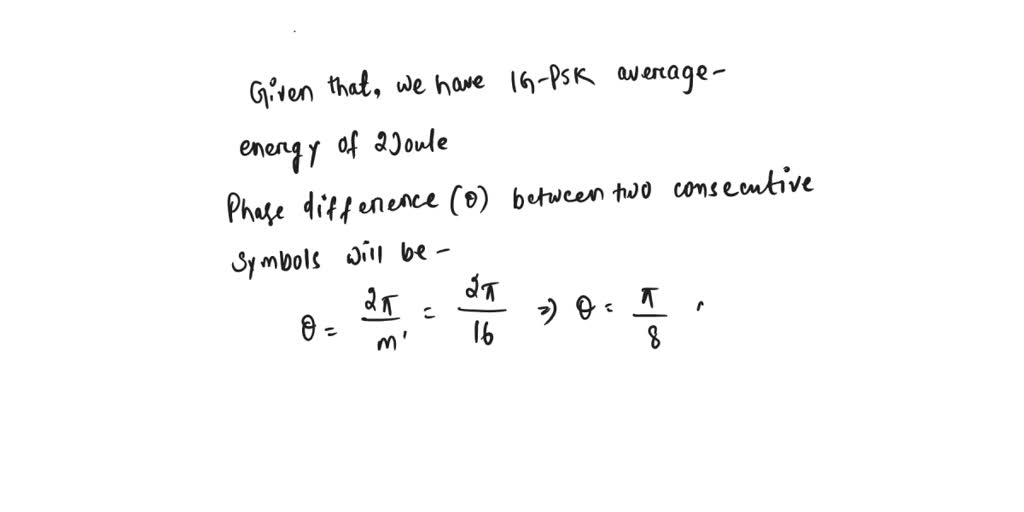 Given that, we have 16-PSK average-
energy of 2Joule
Phase difference (θ) between two consecutive
symbols will be -
θ = 2π/m' = 2π/16 ⇒ θ = π/8 .